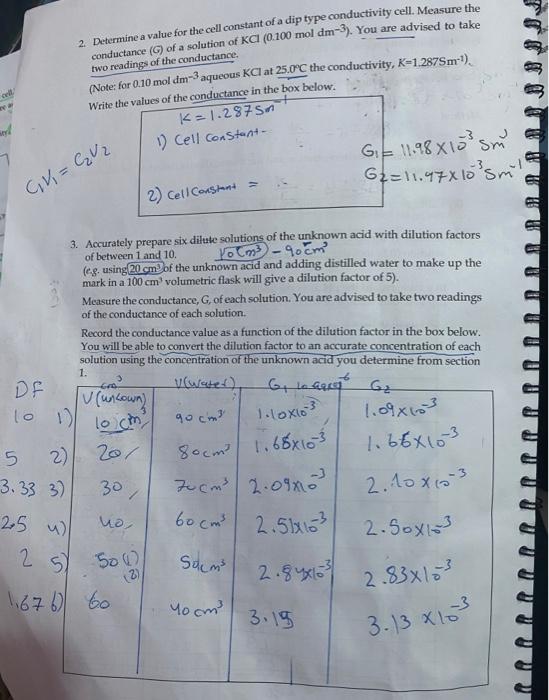 2. Determine a value for the cell constant of a dip type conductivity cell. Measure the
conductance (G) of a solution of KCl (0.100 mol dm⁻³). You are advised to take
two readings of the conductance.
(Note: for 0.10 mol dm⁻³ aqueous KCl at 25.0°C the conductivity, K=1.287Sm⁻¹).
Write the values of the conductance in the box below.
K = 1.287 Sm⁻¹
1) Cell Constant -
C₁V₁ = C₂V₂
G₁ = 11.98 × 10⁻³ Sm⁻¹
G₂ = 11.97 × 10⁻³ Sm⁻¹
2) Cell Constant =
3. Accurately prepare six dilute solutions of the unknown acid with dilution factors
of between 1 and 10.
10 cm³ - 90 cm³
(e.g. using 20 cm³ of the unknown acid and adding distilled water to make up the
mark in a 100 cm³ volumetric flask will give a dilution factor of 5).
Measure the conductance, G, of each solution. You are advised to take two readings
of the conductance of each solution.
Record the conductance value as a function of the dilution factor in the box below.
You will be able to convert the dilution factor to an accurate concentration of each
solution using the concentration of the unknown acid you determine from section
1.
DF cm³ V(water) G₁ G₂
10 1) 10 cm³ 90 cm³ 1.10×10⁻³ 1.09×10⁻³
5 2) 20 80 cm³ 1.68×10⁻³ 1.66×10⁻³
3.33 3) 30 70 cm³ 2.09×10⁻³ 2.10×10⁻³
2.5 4) 40 60 cm³ 2.51×10⁻³ 2.50×10⁻³
2 5) 50 (1) 50 cm³ 2.84×10⁻³ 2.83×10⁻³
(2)
1.67 6) 60 40 cm³ 3.15 3.13 ×10⁻³